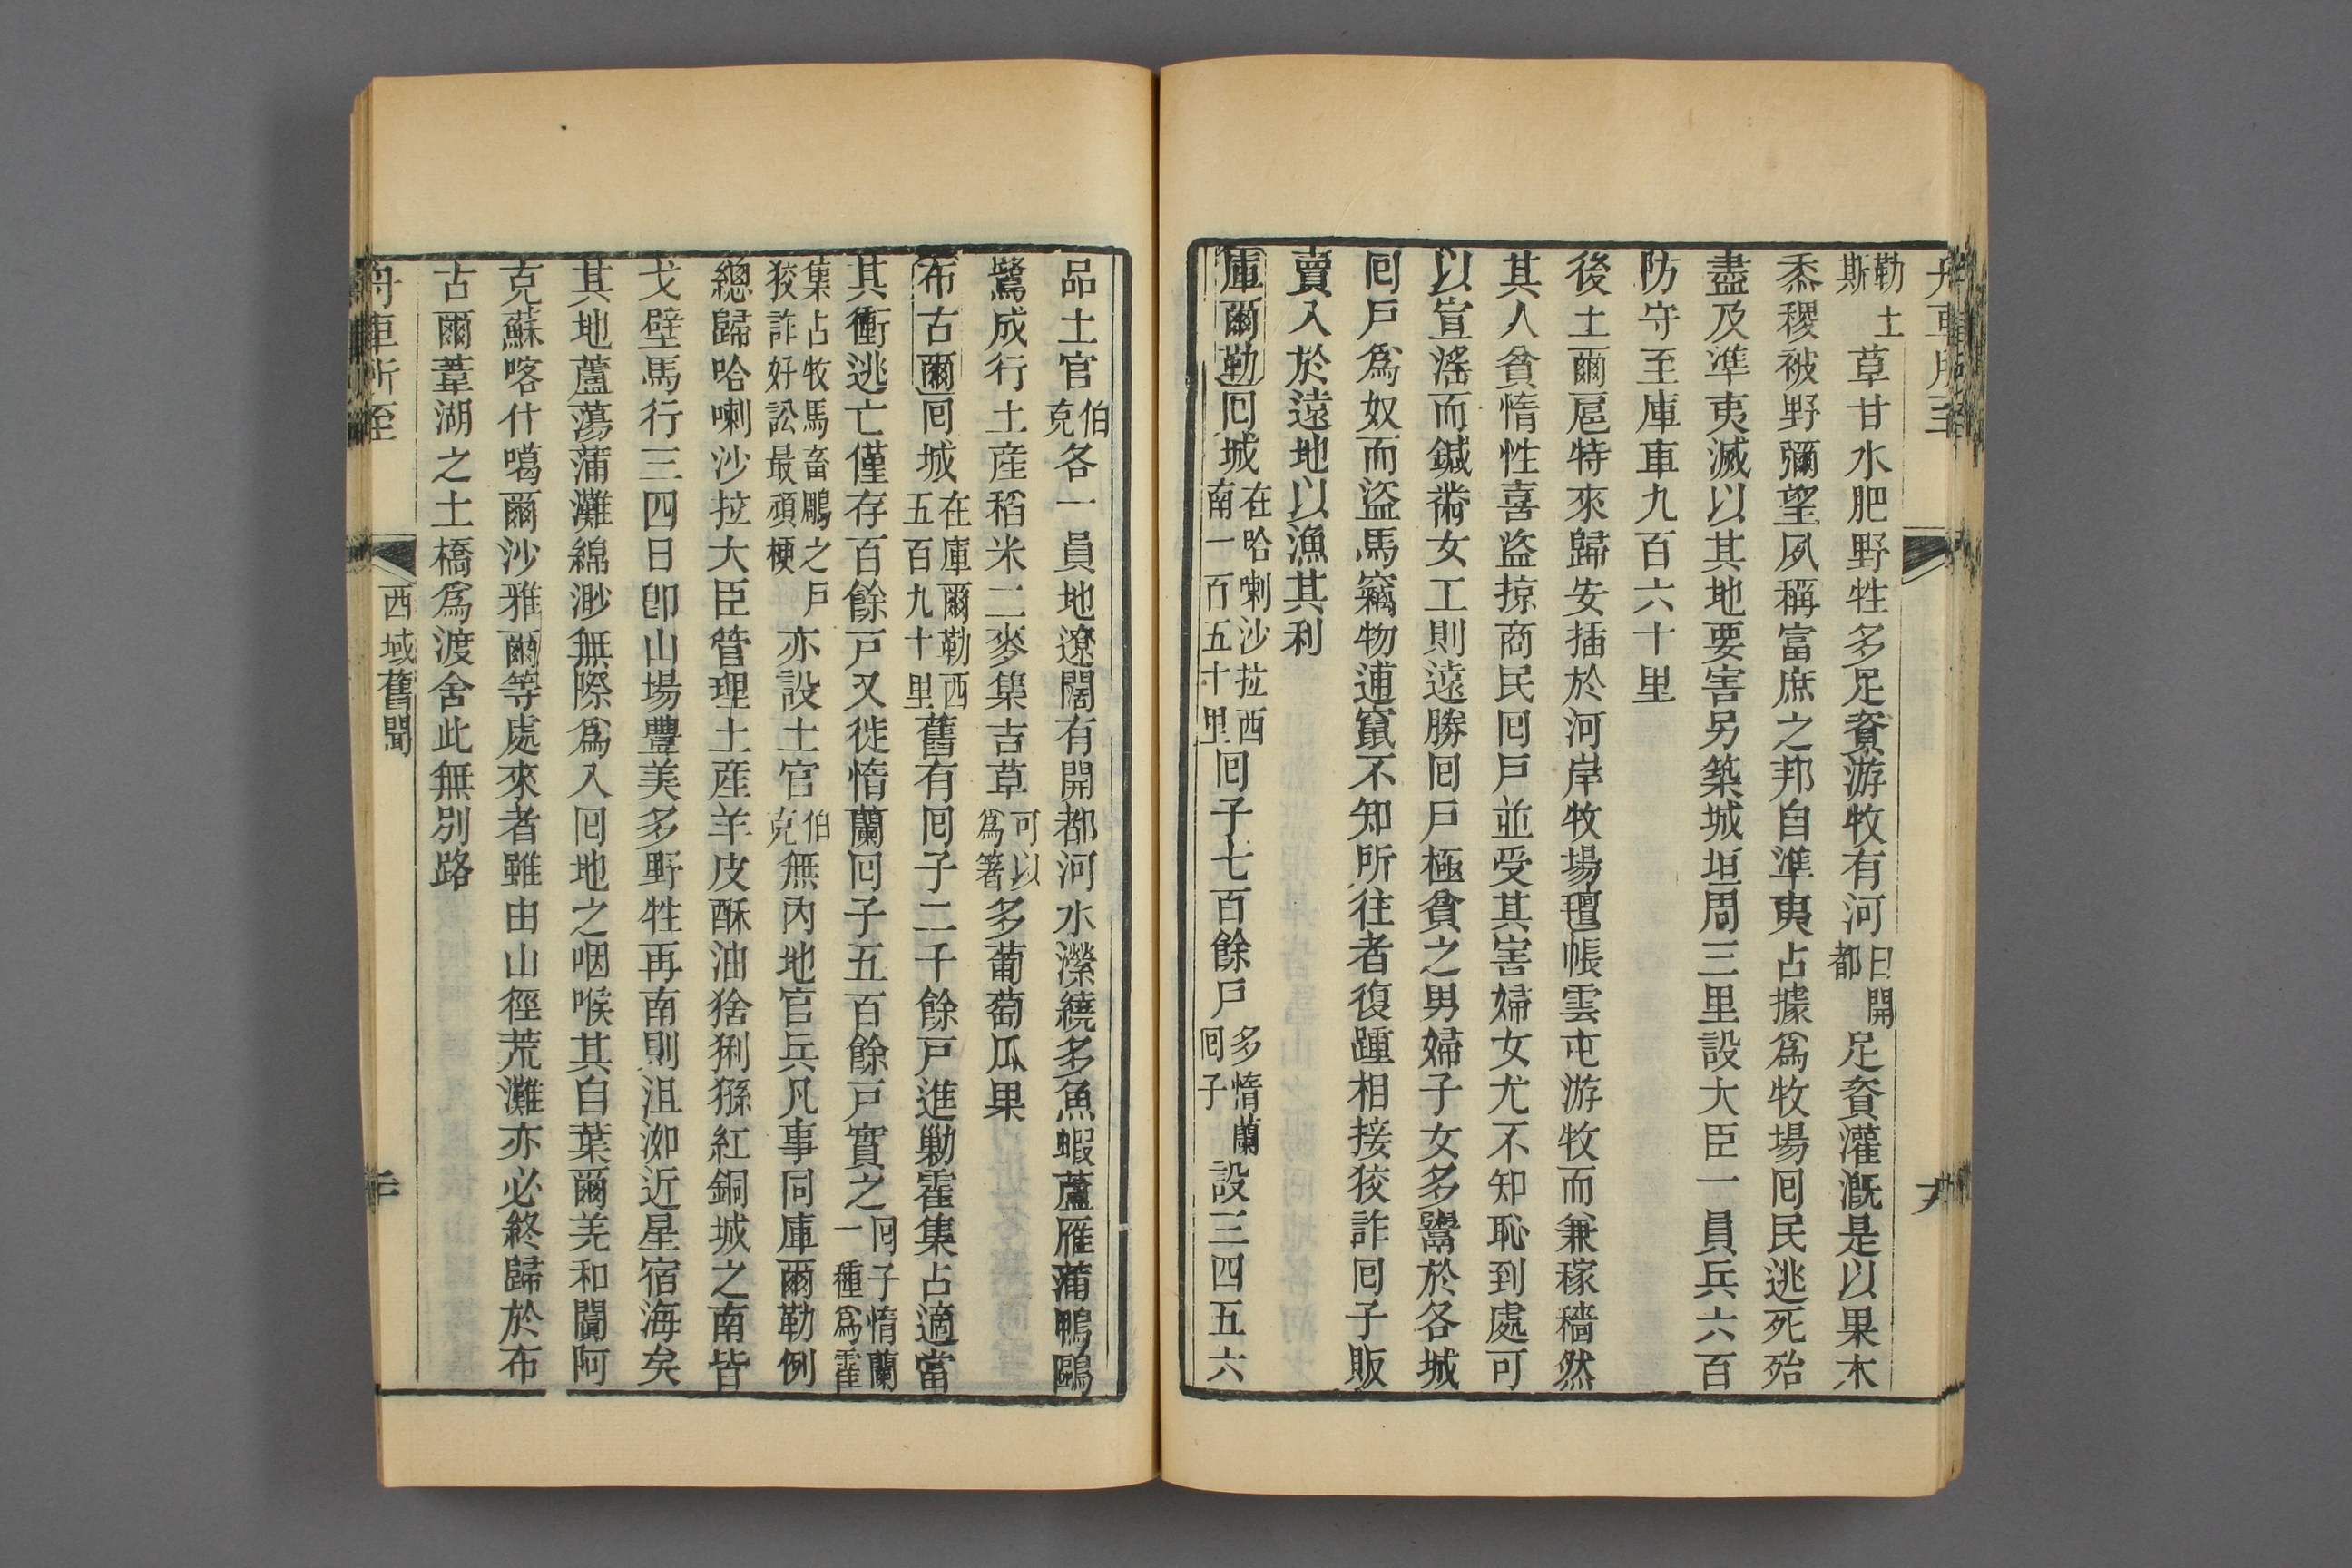 舟車所至
勒土斯草甘水肥野牲多足資游牧有河曰開都足資灌溉是以果木
黍稷被野彌望夙稱富庶之邦自準夷占據爲牧場回民逃死殆
盡及準夷滅以其地要害另築城垣周三里設大臣一員兵六百
防守至庫車九百六十里
後土爾扈特來歸安插於河岸牧場氊帳雲屯游牧而兼稼穡然
其人貧惰性喜盜掠商民回戶並受其害婦女尤不知恥到處可
以宣滛而鍼黹女工則遠勝回戶極貧之男婦子女多鬻於各城
回戶爲奴而盜馬竊物逋竄不知所往者復踵相接狡詐回子販
賣入於遠地以漁其利
庫爾勒回城在哈喇沙拉西南一百五十里回子七百餘戶多惰蘭回子設三四五六
品土官伯克各一員地遼闊有開都河水瀠繞多魚蝦蘆雁蒲鴨鷗
鷺成行土産稻米二麥集吉草可以爲箸多葡萄瓜果
布古爾回城在庫爾勒西五百九十里舊有回子二千餘戶進勦霍集占適當
其衝逃亡僅存百餘戶又徙惰蘭回子五百餘戶實之回子惰蘭一種爲霍
集占牧馬畜鵰之戶狡詐好訟最頑梗亦設土官伯克無內地官兵凡事同庫爾勒例
總歸哈喇沙拉大臣管理土産羊皮酥油猞猁猻紅銅城之南皆
戈壁馬行三四日卽山場豐美多野牲再南則沮洳近星宿海矣
其地蘆蕩蒲灘綿渺無際爲入回地之咽喉其自葉爾羌和闐阿
克蘇喀什噶爾沙雅爾等處來者雖由山徑荒灘亦必終歸於布
古爾葦湖之土橋爲渡舍此無別路
舟車所至
西域舊聞
二十